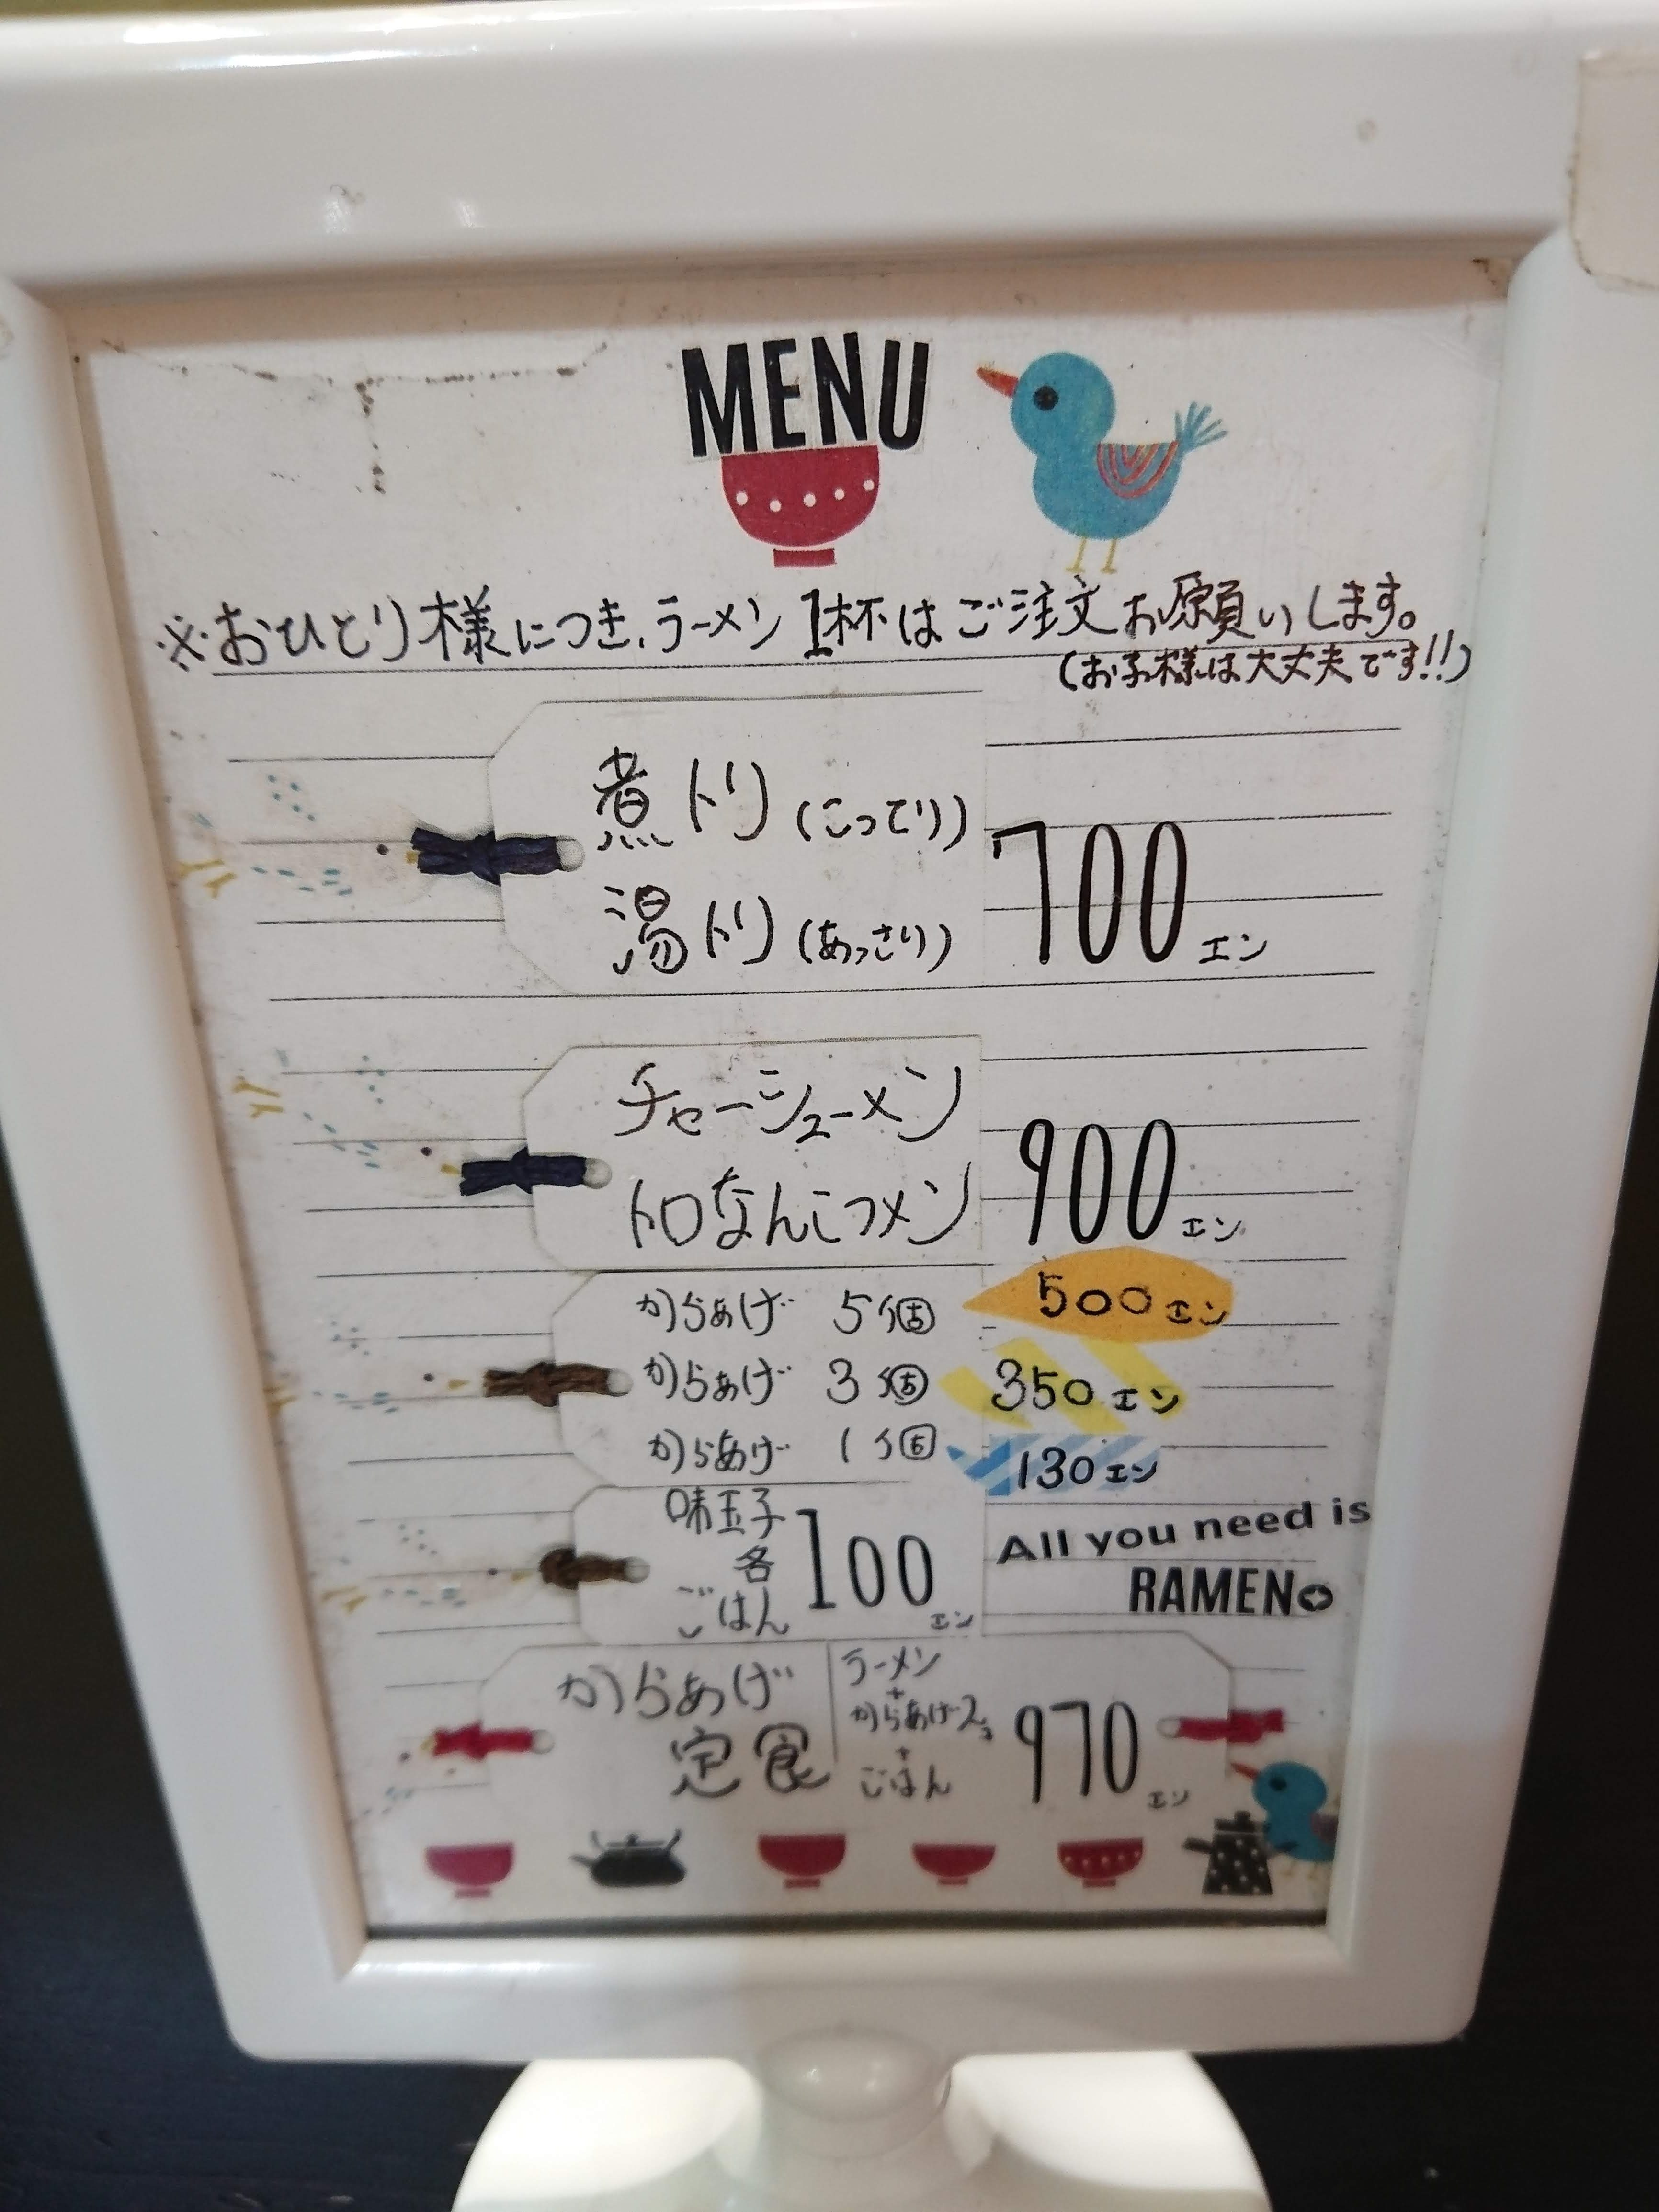 MENU
※おひとり様につき、ラーメン1杯はご注文お願いします。
(お子様は大丈夫です!!)
煮トリ(こってり)
湯トリ(あっさり)
700エン
チャーシューメン
トロなんこつメン
900エン
からあげ 5個 500エン
からあげ 3個 350エン
からあげ 1個 130エン
味玉子
各
ごはん
100エン
All you need is
RAMEN
からあげ
定食
ラーメン
+
からあげ2コ
+
ごはん
970エン